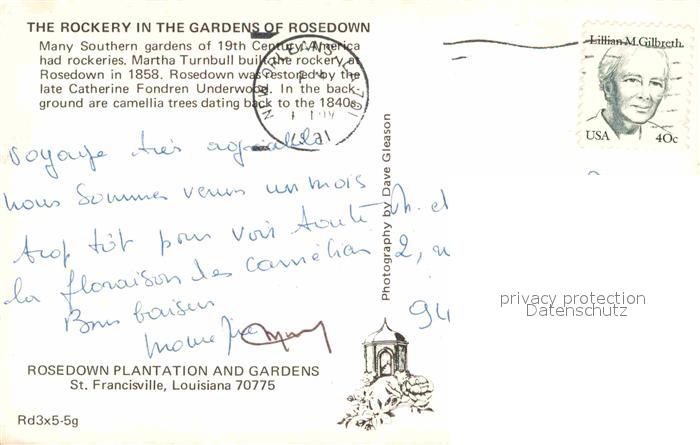 THE ROCKERY IN THE GARDENS OF ROSEDOWN
Many Southern gardens of 19th Century America
had rockeries. Martha Turnbull built the rockery at
Rosedown in 1858. Rosedown was restored by the
late Catherine Fondren Underwood. In the back-
ground are camellia trees dating back to the 1840s.
Lillian M. Gilbreth
USA 40c
NEW ORLEANS
Voyage très agréable
nous sommes venus un mois
trop tôt pour voir toute
la floraison des camélias
Bons baisers
M. et
2, 
94
Photography by Dave Gleason
privacy protection
Datenschutz
ROSEDOWN PLANTATION AND GARDENS
St. Francisville, Louisiana 70775
Rd3x5-5g